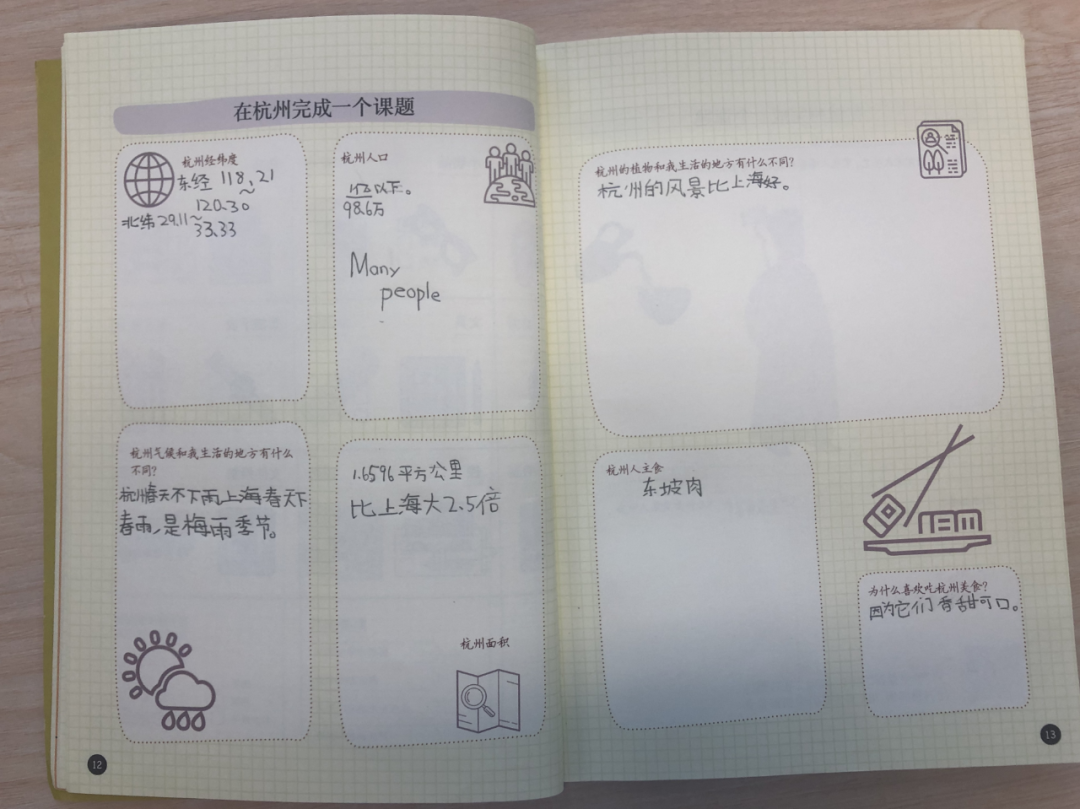 在杭州完成一个课题
杭州经纬度
东经 118.21
~
120.30
北纬29.11~
33.33
杭州人口
以下。
98.6万
Many
people
杭州气候和我生活的地方有什么
不同?
杭州春天不下雨,上海春天下
春雨,是梅雨季节。
1.6596平方公里
比上海大2.5倍
杭州面积
12
杭州的植物和我生活的地方有什么不同?
杭州的风景比上海好。
杭州人主食
东坡肉
为什么喜欢吃杭州美食?
因为它们香甜可口。
13